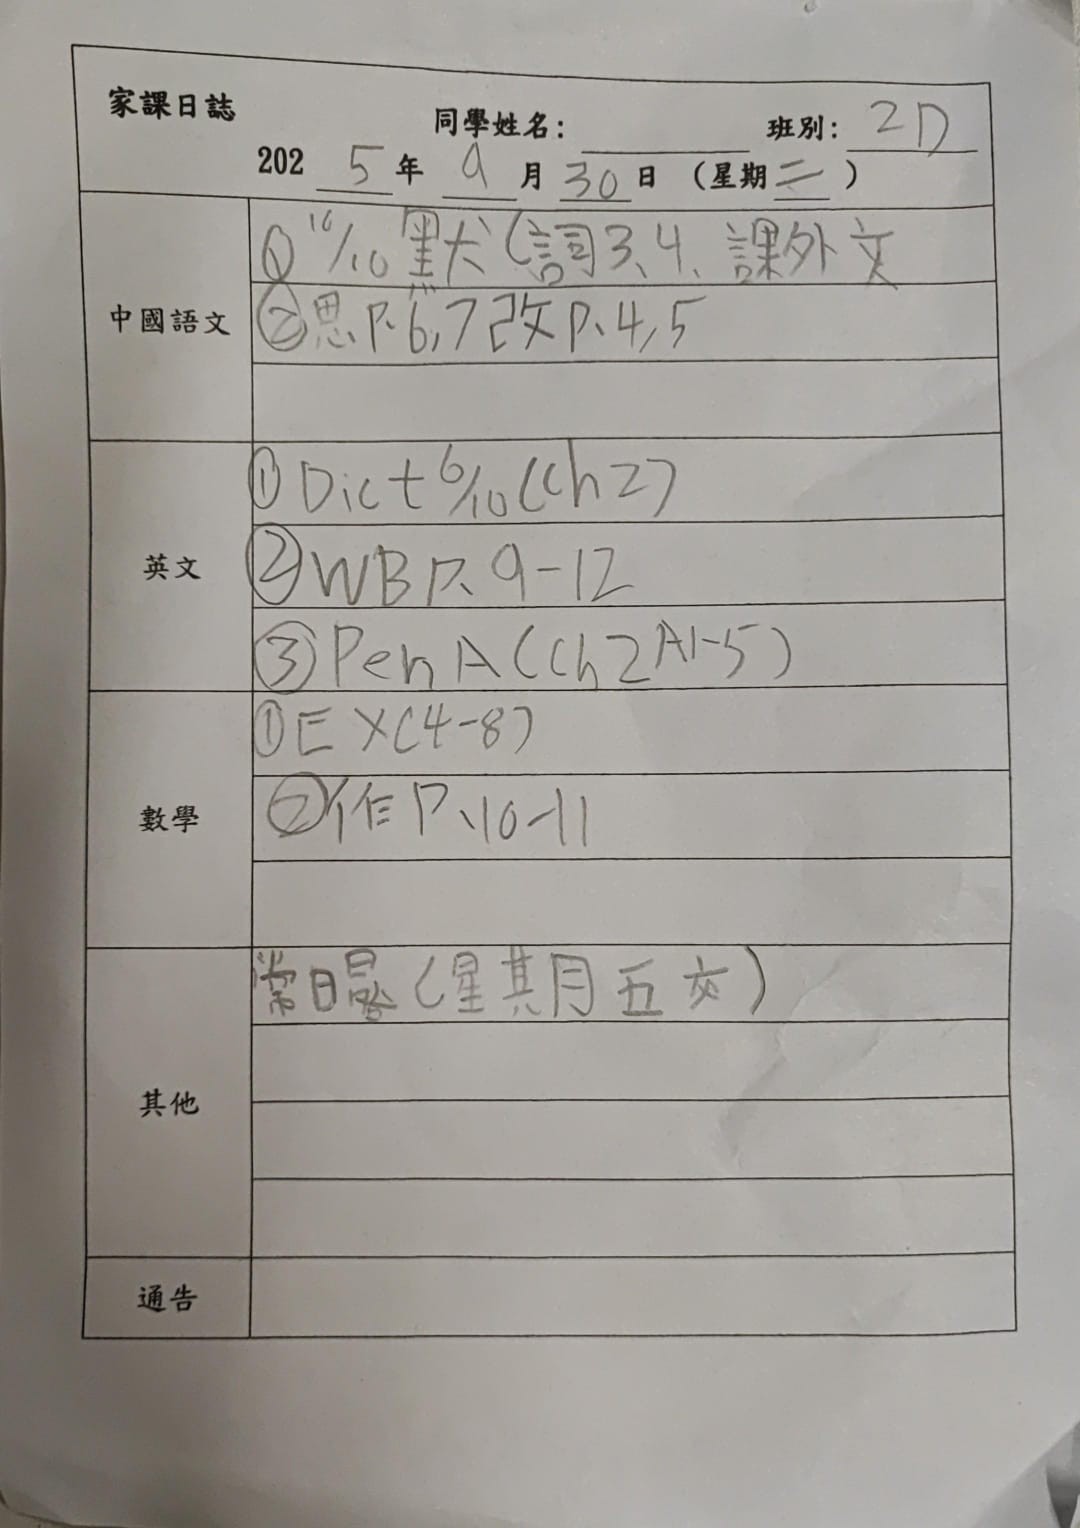 家課日誌 同學姓名： 班別：2D
2025年9月30日（星期二）
中國語文
① 16/10 默犬（詞3、4、課外文
② 思P.6,7改P.4,5
英文
① Dict 6/10 (Ch 2)
② WB P. 9-12
③ Pen A (Ch 2 A1-5)
數學
① EX(4-8)
② 作P.10-11
其他
常日（星其月五交）
通告